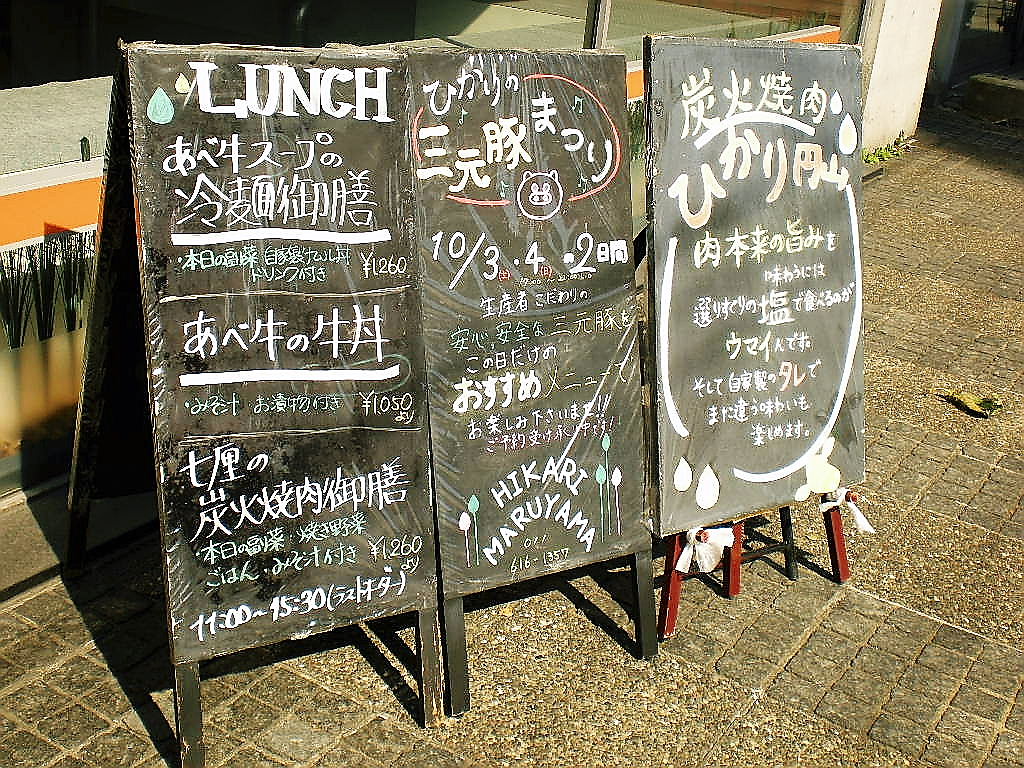 LUNCH
あべ牛スープの
冷麺御膳
・本日の副菜 自家製すいし丼
ドリンク付き ¥1260
あべ牛の牛丼
・みそ汁 お漬物付き ¥1050より
七厘の
炭火焼肉御膳
・本日の副菜 ・焼き野菜
ごはん・みそ汁付き ¥1,260より
11:00~15:30(ラストオーダー)
ひかりの
三元豚まつり
10/3・4・2日間
生産者こだわりの
安心、安全な三元豚を
この日だけの
おすすめメニューで
お楽しみ下さいませ!!
ご予約受け承り中です!!
HIKARI
MARUYAMA
011
616-1357
炭火焼肉
ひかり円山
肉本来の旨みを
味わうには
選りすぐりの塩で食べるのが
ウマイんです。
そして自家製のタレで
また違う味わいも
楽しめます。